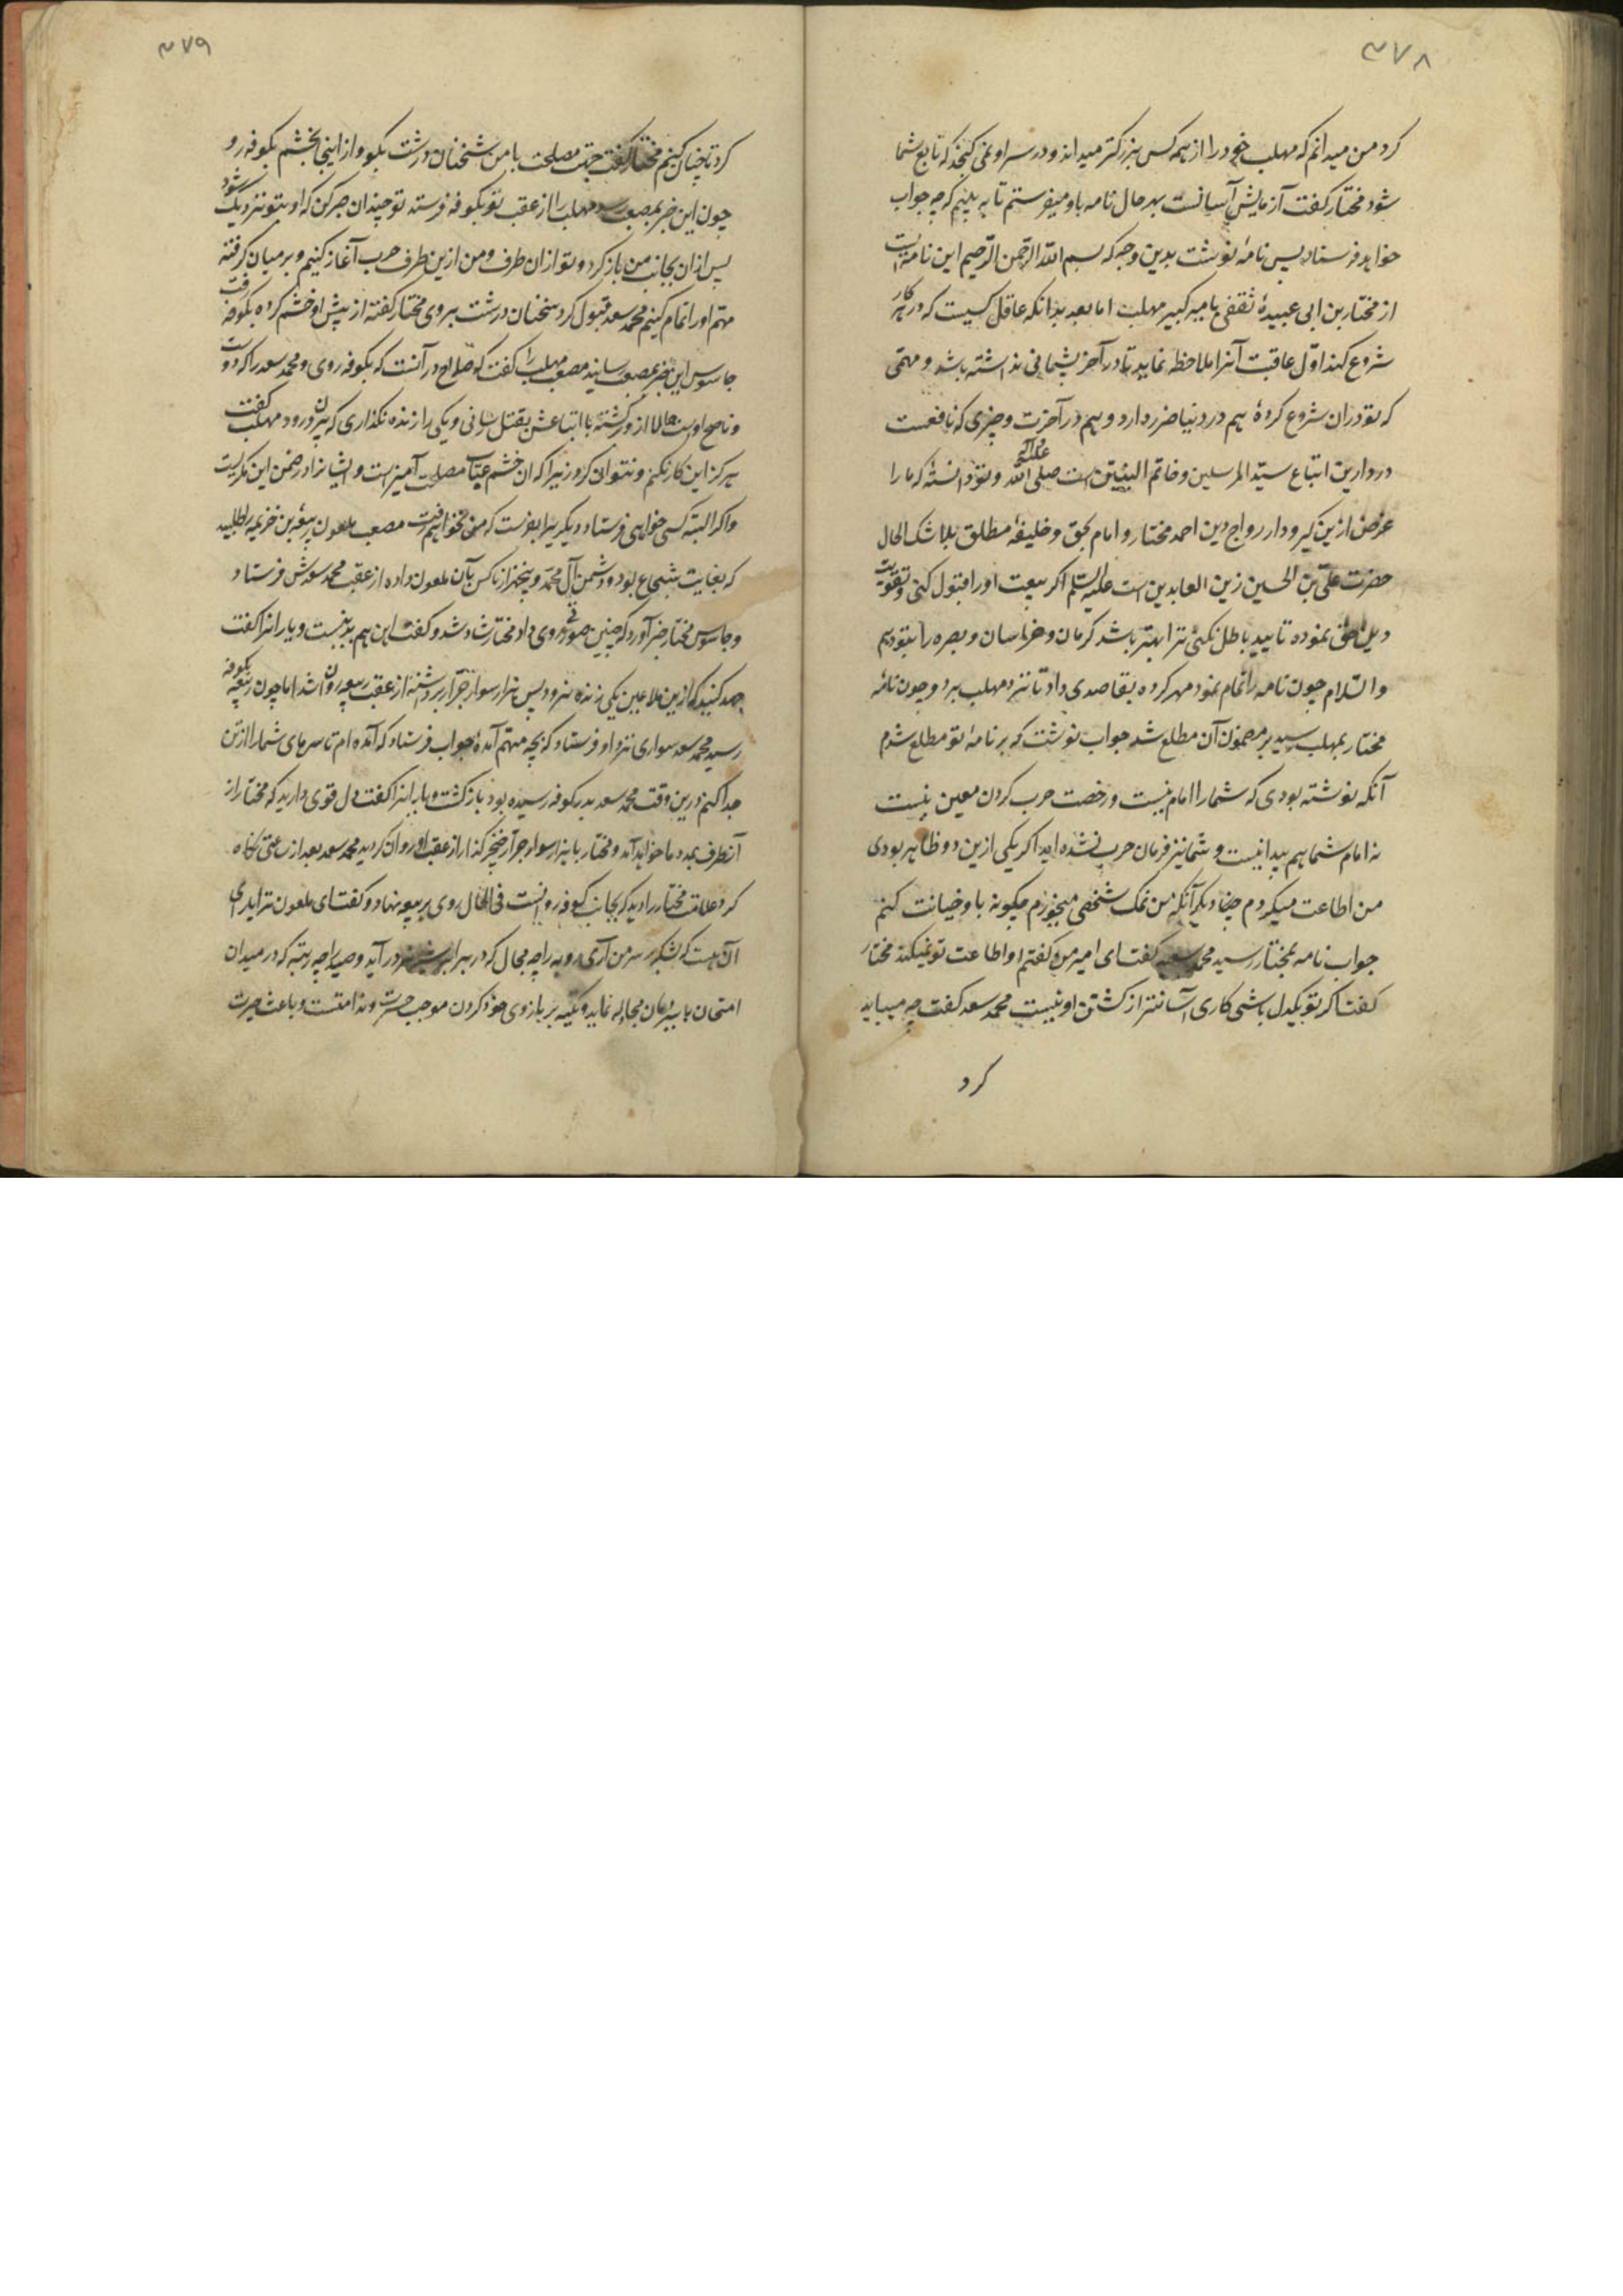 ۳۷۸
کرد من میدانم که مهلب خود را از همه کس بزرکتر میداند و در سر او نمی کنجد که تابع شما
شود مختار کفت آزمایش آسانست بهر حال نامه باو میفرستم تا به بینم که چه جواب
خواهد فرستاد پس نامهٔ نوشت بدین وجه که بسم الله الرحمن الرحیم این نامه ایست
از مختار بن ابی عبیدهٔ ثقفی بامیر کبیر مهلب اما بعد بدانکه عاقل کسیست که در هر کار
شروع کند اوّل عاقبت آنرا ملاحظه نماید تا در آخر پشیمانی نداشته باشد و مهمّی
که تو دران شروع کردهٔ هم در دنیا ضرر دارد و هم در آخرت و چیزی که نافعست
در دارین اتباع سیّد المرسلین و خاتم النبیّین است صلی الله علیه وآله و تو دانستهٔ که ما را
غرض ازین کیر و دار رواج دین احمد مختار و امام بحق و خلیفهٔ مطلق بلاشک الحال
حضرت علیّ بن الحسین زین العابدین است علیه السّلم اکر بیعت او را قبول کنی و تقویت
دین حق نموده تایید باطل نکنی ترا بهتر باشد کرمان و خراسان و بصره را بتو دهم
والسّلام چون نامه را تمام نمود مهر کرده بقاصدی داد تا نزد مهلب برد و چون نامهٔ
مختار بمهلب رسید بر مضمون آن مطلع شد جواب نوشت که بر نامهٔ تو مطلع شدم
آنکه نوشته بودی که شما را امام نیست و رخصت حرب کردن معین نیست
نه امام شما هم پیدا نیست و شما نیز فرمان حرب نشده اید اکر یکی ازین دو ظاهر بودی
من اطاعت میکردم دیکر آنکه من نمک شخصی میخورم چکونه باو خیانت کنم
جواب نامه بمختار رسید محمد سعد کفت ای امیر من کفتم او اطاعت تو نمیکند مختار
کفت اکر تو یکدل باشی کاری آسانتر از کشتن او نیست محمد سعد کفت چه میباید
کرد
۳۷۹
کرد تا چنان کنیم مختار کفت جهت مصلحت با من سخنان درشت بکو و از اینجا بخشم بکوفه رو
چون این خبر بمصعب رسد مهلب را از عقب تو بکوفه فرستد تو چندان صبر کن که او بتو نزدیک شود
پس ازان بجانب من باز کرد و تو ازان طرف و من ازین طرف حرب آغاز کنیم و بر میان کرفته
مهم او را تمام کنیم محمد سعد قبول کرد سخنان درشت بروی مختار کفته از پیش او خشم کرده بکوفه رفت
جاسوس این خبر بمصعب رسانید مصعب مهلب را کفت که صلاح در آنست که بکوفه روی و محمد سعد را که دوست
و ناصح او است حالا ازو کشته با اتباعش بقتل رسانی و یکی را زنده نکذاری که بیرون رود مهلب کفت
هرکز این کار نکنم و نتوان کرد زیرا که ان خشم عتاب مصلحت آمیز است و ایشانرا در ضمن این مکریست
و اکر البته کسی خواهی فرستاد دیکریرا بفرست که من نخواهم رفت مصعب ملعون ربیعه بن خزیمه را طلبید
که بغایت شجاع بود و دشمن آل محمد و پنجهزار ناکس بآن ملعون داده از عقب محمد سعدش فرستاد
و جاسوس مختار خبر آورد که چنین صورتی روی داد مختار شاد شد و کفت این هم بد نیست و یارانرا کفت
جهد کنید که ازین ملاعین یکی زنده نرود پس هزار سوار جرّار برداشته از عقب ربیعه روان شد اما چون ربیعه بکوفه
رسید محمد سعد سواری نزد او فرستاد که بچه مهم آمدهٔ جواب فرستاد که آمده ام تا سرهای شما را از تن
جدا کنم درین وقت محمد سعد بدر کوفه رسیده بود بازکشت و یارانرا کفت دل قوی دارید که مختار از
آنطرف بمدد ما خواهد آمد و مختار با هزار سوار جرّار خنجر کذار از عقب او روان کردید محمد سعد بعد از ساعتی نکاه
کرد علامت مختار را دید که بجانب کوفه روانست فی الحال روی بربیعه نهاد و کفت ای ملعون ترا یارای
آن هست که لشکر بر سر من آری روبه را چه مجال که در برابر شیر نر در آید و صید را چه رتبه که در میدان
امتحان با ببر دمان مجادله نماید و تکیه بر بازوی خود کردن موجب حسرت و ندامتست و باعث حیرت